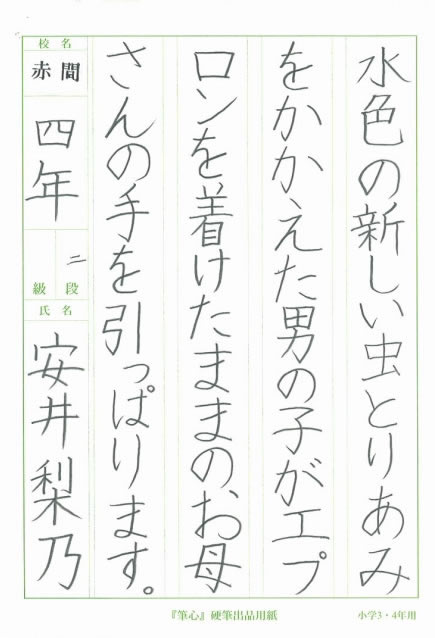 水色の新しい虫とりあみ
をかかえた男の子がエプ
ロンを着けたままのお母
さんの手を引っぱります。
校名
赤間
四年
二
級段
氏名
安井梨乃
『筆心』硬筆出品用紙
小学3・4年用